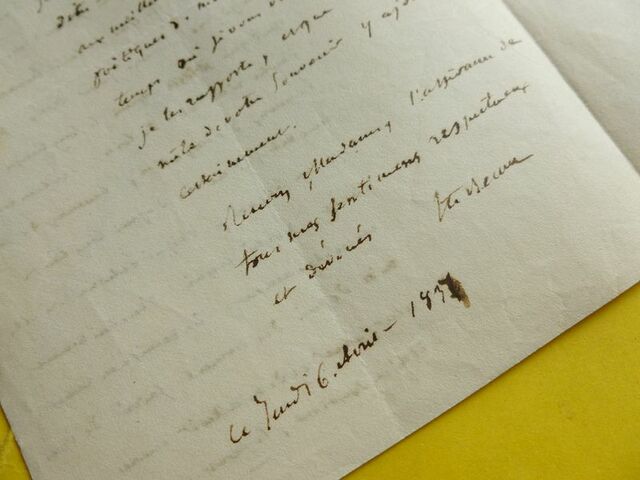 aux meilleu
poëtiques de m
temps où j'
je les rapporte, et que
mêle de votre souvenir y aj
certainement.
Recevez, Madame, l'assurance de
tous mes sentiments respectueux
et dévoués
Ste Beuve
ce Jeudi 6 Avril - 18